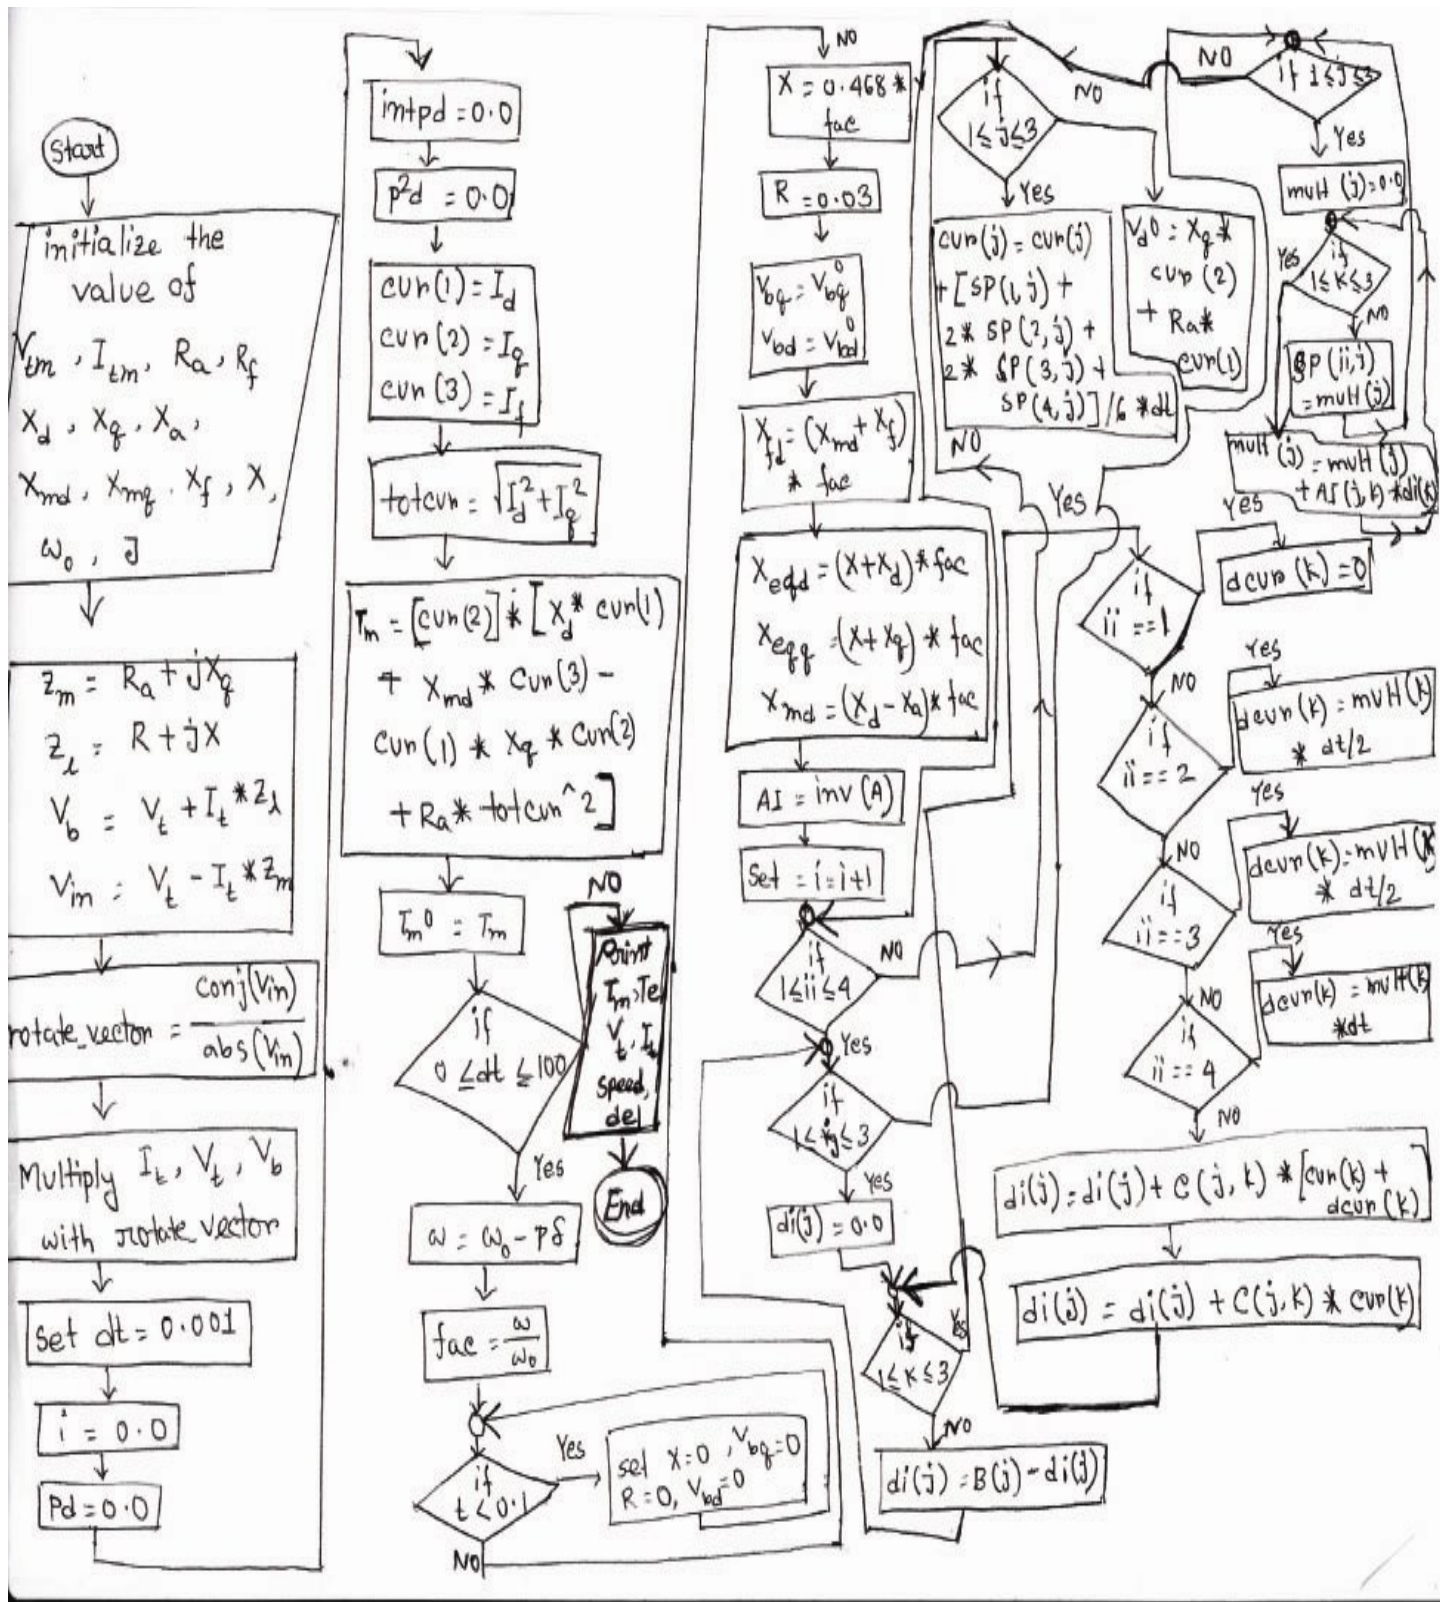 Start
initialize the
value of
V_tm, I_tm, R_a, R_f
X_d, X_q, X_a,
X_md, X_mq, X_f, X,
ω_0, J
Z_m = R_a + jX_q
Z_l = R + jX
V_b = V_t + I_t * Z_l
V_in = V_t - I_t * Z_m
rotate_vector = conj(V_in)
abs(V_in)
Multiply I_t, V_t, V_b
with rotate vector
set dt = 0.001
i = 0.0
Pd = 0.0
intpd = 0.0
p^2d = 0.0
cur(1) = I_d
cur(2) = I_q
cur(3) = I_f
totcur = √I_d^2 + I_q^2
T_m = [cur(2)] * [X_d * cur(1)
+ X_md * cur(3) -
cur(1) * X_q * cur(2)
+ Ra * totcur^2]
T_m^0 = T_m
if
0 ≤ dt ≤ 100
NO
Yes
Print
T_m, Te
V_t, I_t
speed,
del
End
ω = ω_0 - pδ
fac = ω/ω_0
if
t < 0.1
Yes
set X=0, V_bq=0
R=0, V_bd=0
NO
NO
X = 0.468 *
fac
R = 0.03
V_bq = V_bq^0
V_bd = V_bd^0
X_fd = (X_md + X_f)
* fac
X_eqd = (X + X_d) * fac
X_eqq = (X + X_q) * fac
X_md = (X_d - X_a) * fac
AI = inv(A)
Set = i = i+1
if
1 ≤ ii ≤ 4
NO
Yes
if
1 ≤ j ≤ 3
Yes
di(j) = 0.0
if
1 ≤ K ≤ 3
Yes
NO
di(j) = B(j) - di(j)
if
1 ≤ j ≤ 3
NO
Yes
cur(j) = cur(j)
+ [SP(1,j) +
2 * SP(2,j) +
2 * SP(3,j) +
SP(4,j)] /6 * dt
NO
V_d0 = X_q *
cur(2)
+ Ra *
cur(1)
NO
if 1 ≤ j ≤ 3
Yes
mult(j) = 0.0
if
1 ≤ K ≤ 3
Yes
NO
SP(ii,j)
= mult(j)
mult(j) = mult(j)
+ AI(j,k) * di(k)
Yes
if
ii == 1
Yes
dcur(k) = 0
NO
if
ii == 2
Yes
dcur(k) = mult(k)
* dt/2
NO
if
ii == 3
Yes
dcur(k) = mult(k)
* dt/2
NO
if
ii == 4
Yes
dcur(k) = mult(k)
* dt
NO
di(j) = di(j) + C(j,k) * [cur(k) +
dcur(k)]
di(j) = di(j) + C(j,k) * cur(k)